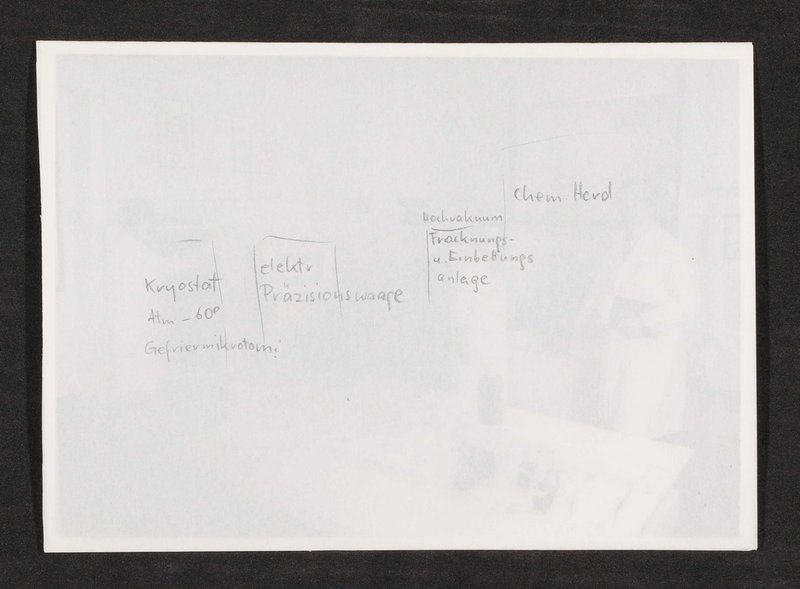 Chem. Herd
Hochvakuum
Trocknungs-
u. Einbettungs
anlage
elektr
Präzisionswaage
Kryostat
Atm - 60°
Gefriermikrotom